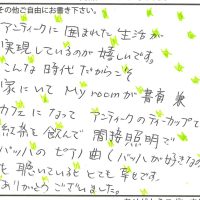 その他ご自由にお書き下さい。
アンティークに囲まれた生活が
実現しているのが嬉しいです。
こんな時代だからこそ
家にいて My roomが書斎兼
カフェになって アンティークのティーカップで
紅茶を飲んで 間接照明で
バッハのピアノ曲(バッハが好きなの
を聴いているととても幸せです。
ありがとうございました。